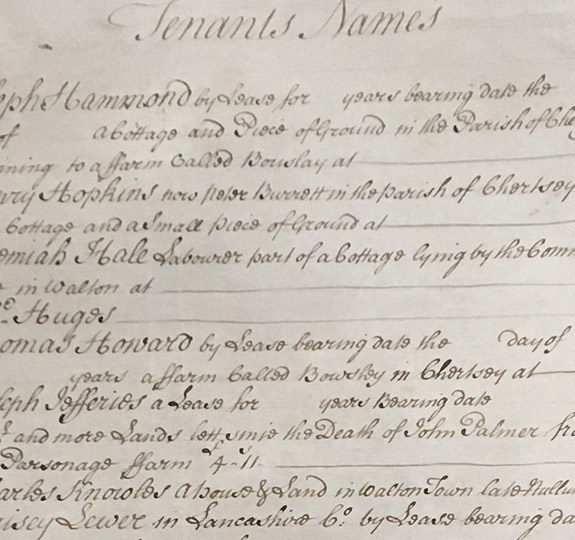 Tenants Names
eph Hammond by Lease for years bearing date the
of a Cottage and Piece of Ground in the Parish of Che
ining to a ffarm Called Bowslay at
nry Hopkins now Peter Burrett in the parish of Chertsey
Cottage and a Small piece of Ground at
emiah Hale Labourer part of a Cottage lying by the Comm
in Walton at
Huges
omas Howard by Lease bearing date the day of
years a ffarm Called Bowsley in Chertsey at
eph Jefferies a Lease for years Bearing date
and more Lands lett, sinie the Death of John Palmer fro
Parsonage ffarm 4-11
arles Knowles a house & Land in Walton Town late
risey Lewer in Lancashire Co. by Lease bearing da